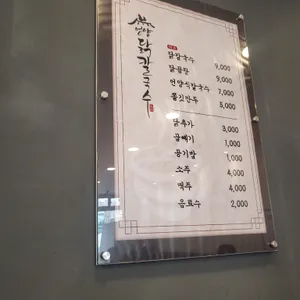 언양
닭칼국수
닭칼국수 9,000
닭곰탕 9,000
언양식칼국수 7,000
쫄깃만두 5,000
닭추가 3,000
곱빼기 1,000
공기밥 1,000
소주 4,000
맥주 4,000
음료수 2,000